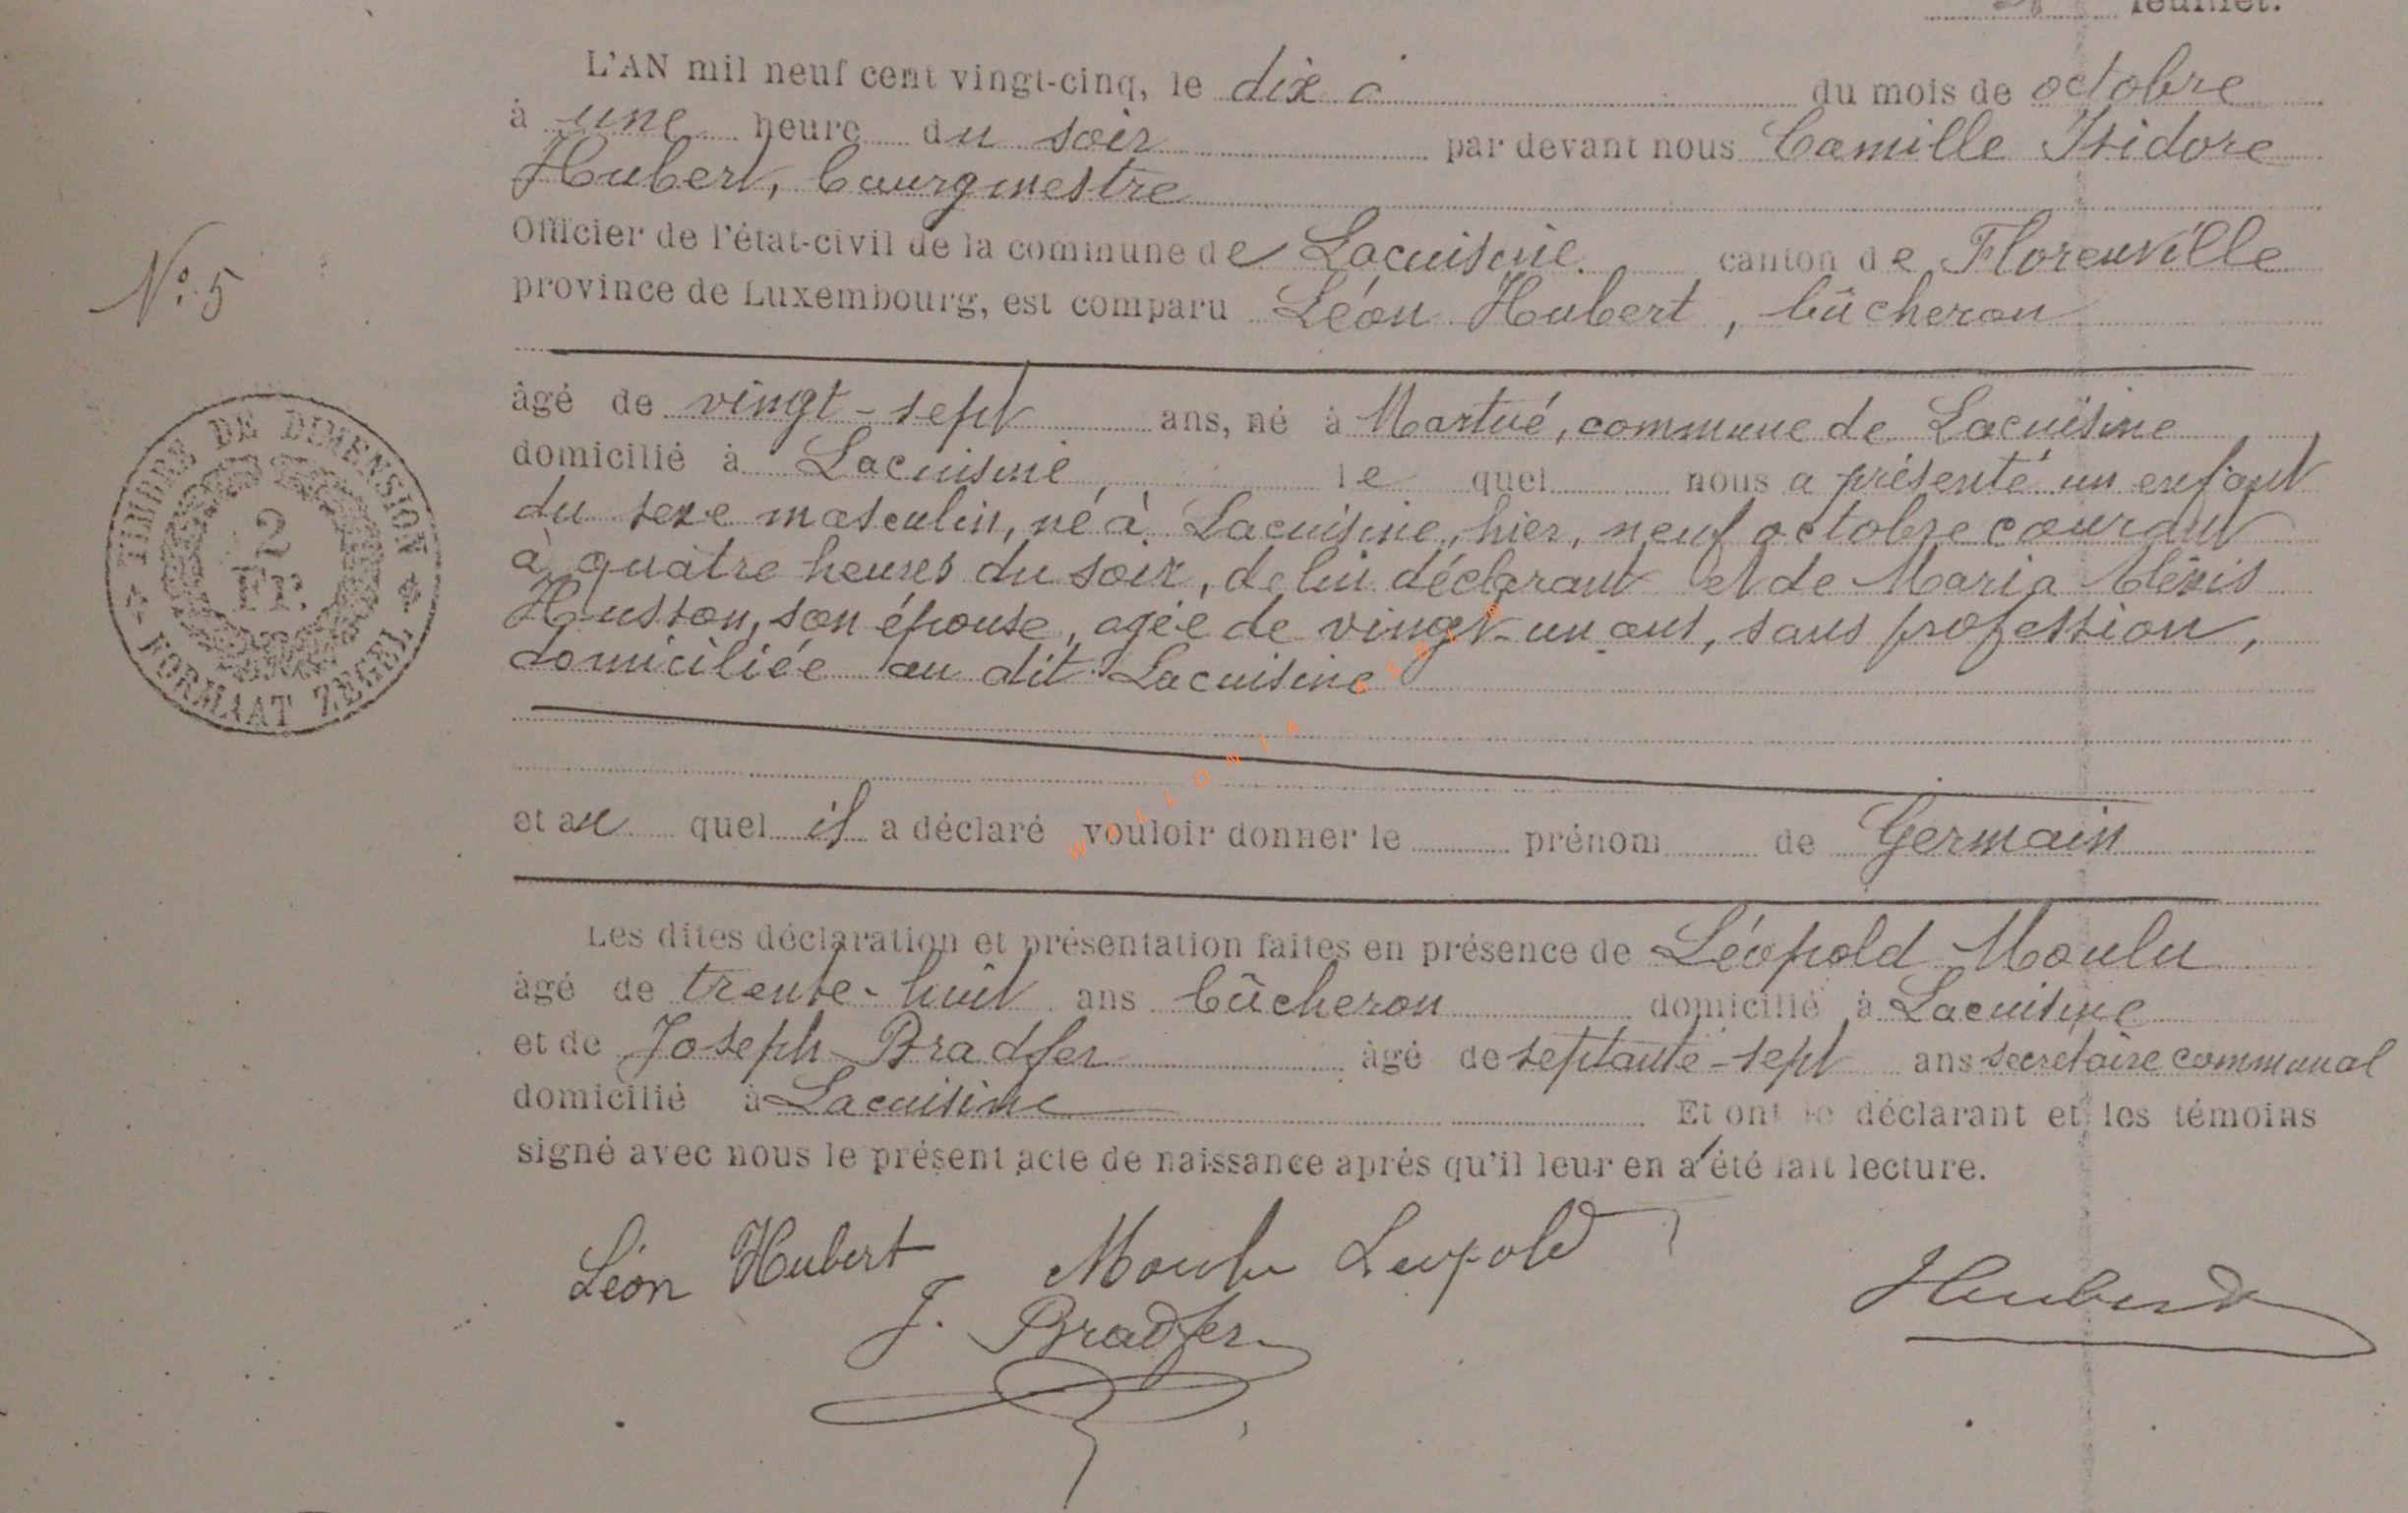 feuillet.
L'AN mil neuf cent vingt-cinq, le dix à du mois de octobre
à une heure du soir par devant nous Camille Isidore
Hubert, bourgmestre
Officier de l'état-civil de la commune de Lacuisine. canton de Florenville
province de Luxembourg, est comparu Léon Hubert, bûcheron
N° 5
âgé de vingt-sept ans, né à Martué, commune de Lacuisine
domicilié à Lacuisine, le quel nous a présenté un enfant
du sexe masculin, né à Lacuisine, hier, neuf octobre courant
à quatre heures du soir, de lui déclarant et de Maria
Husson, son épouse, agée de vingt-un ans, sans profession,
domiciliée au dit Lacuisine
TIMBRE DE DIMENSION
2
Fr.
FORMAAT ZEGEL
WALLONIA
et au quel il a déclaré vouloir donner le prénom de Germain
Les dites déclaration et présentation faites en présence de Léopold Moulu
âgé de trente-huit ans bûcheron domicilié à Lacuisine
et de Joseph Bradfer âgé de septante-sept ans secrétaire communal
domicilié à Lacuisine Et ont le déclarant et les témoins
signé avec nous le présent acte de naissance après qu'il leur en a été fait lecture.
Léon Hubert Moulu Leopold
J. Bradfer
Hubert